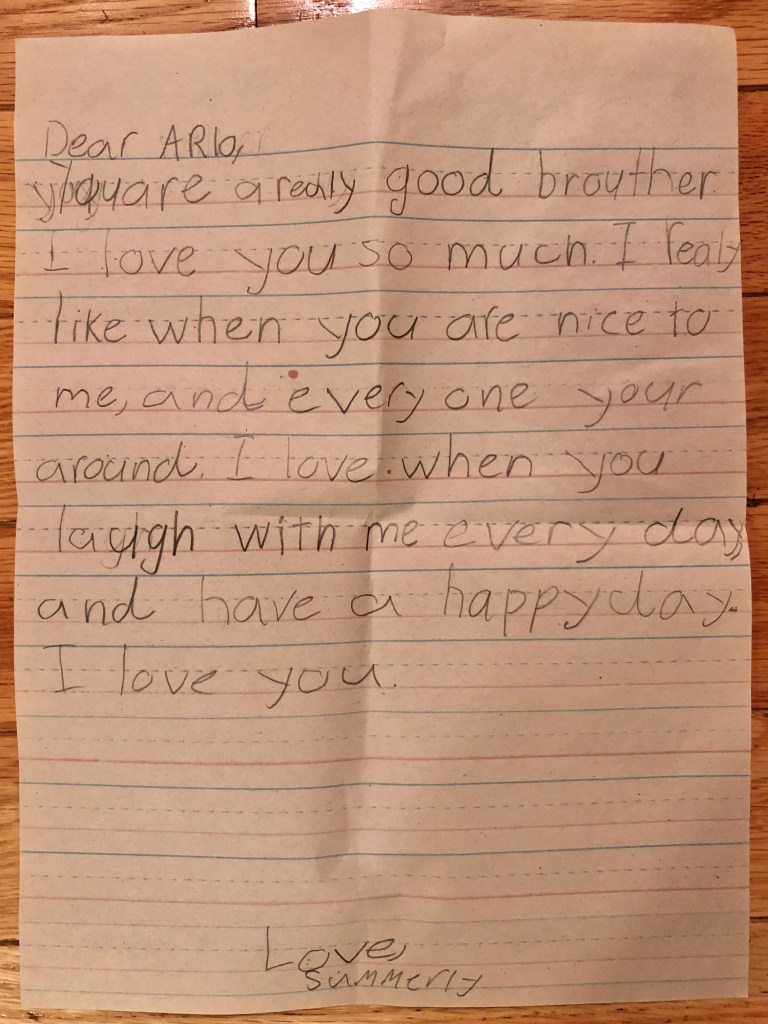 Dear ARlo,
you are a realy good brouther.
I love you so much. I realy
like when you are nice to
me, and every one your
around. I love when you
laugh with me every day,
and have a happy day.
I love you.
Love,
Summerly